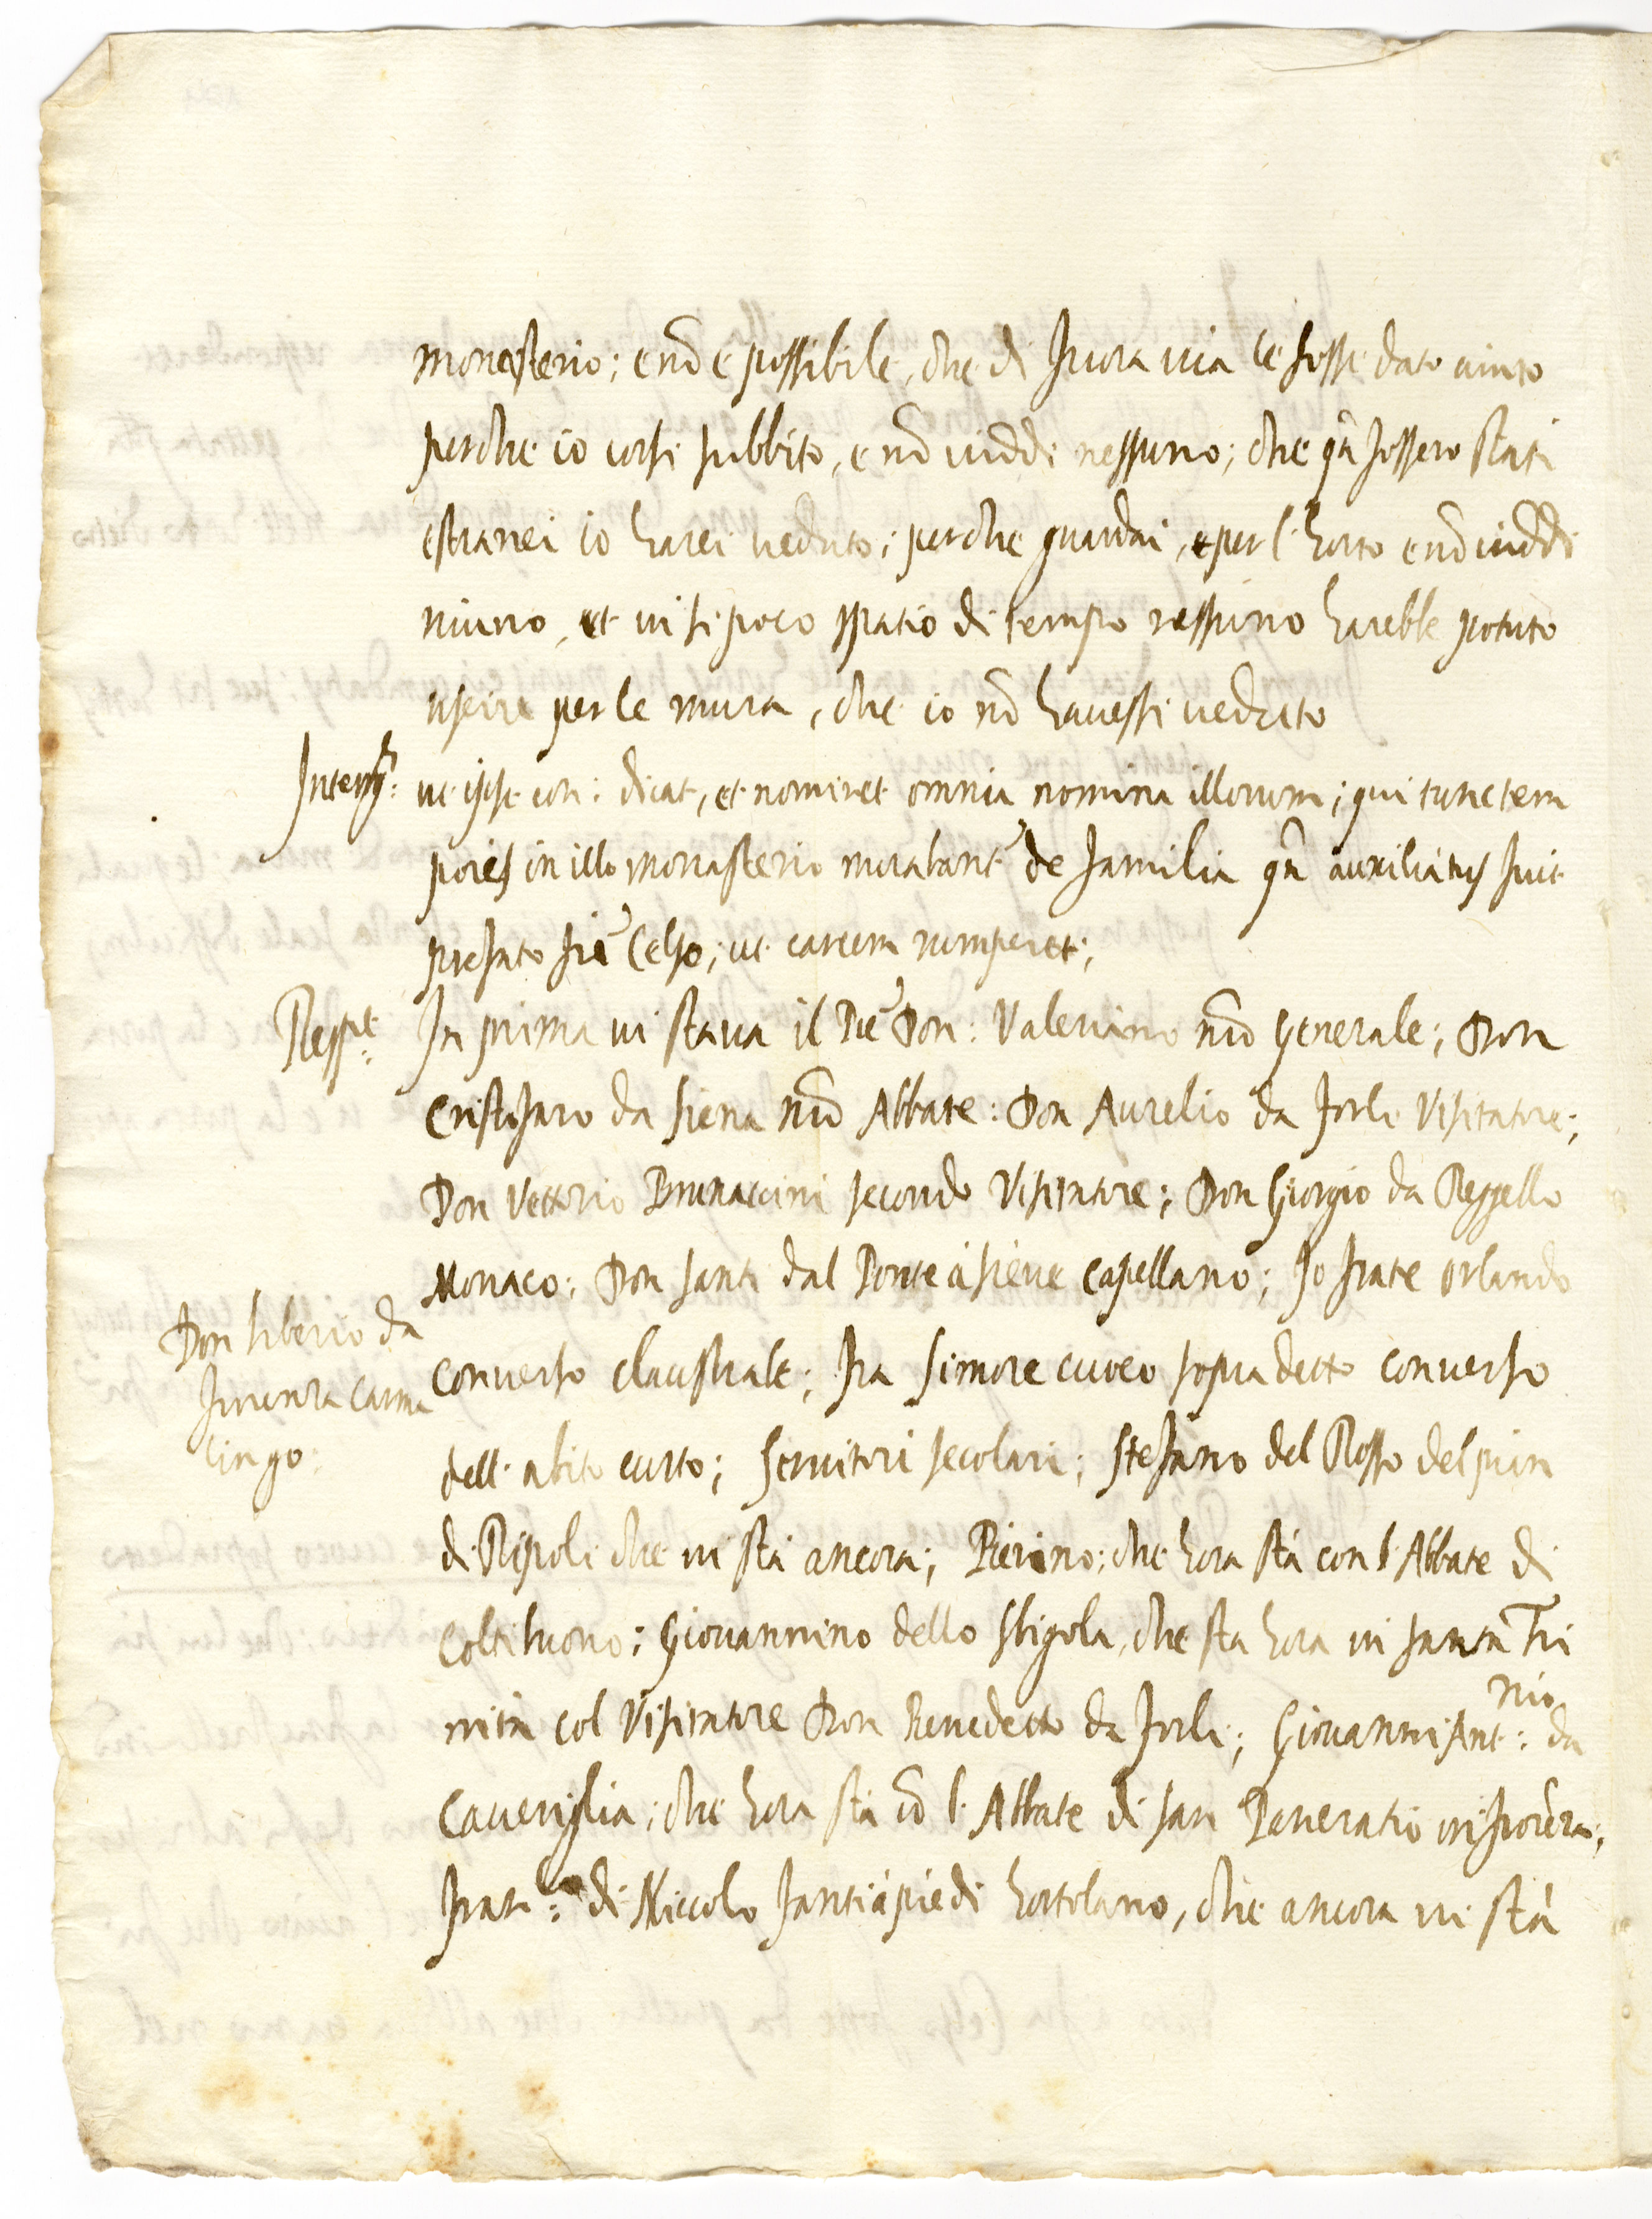 monasterio; e nō e possibile, che di fuora via le fosse dato aiuto
perche io corsi subbito, e nō viddi nessuno; che qn̄ fossero stati
estranei io harei veduto; perche guardai, e per l'horto e nō viddi
niuno, et in si poco spatio di tempo nessuno harebbe potuto
uscire per le mura, che io nō havessi veduto
Interrg: ut ipse con: dicat, et nominet omnia nomina illorum; qui tunc tem
poris in illo monasterio morabant de familia qn̄ auxiliatus fuit
prefato frī Celso; ut carcera rumperet;
Resp.t In prima vi stava il Prē Don: Valeriano nr̄o Generale; Don
Cristofaro da Siena nr̄o Abbate: Don Aurelio da Forli Visitatore;
Don Vettorio Brunaccini secondo Visitatore; Don Giorgio da Reggello
Monaco: Don Santi dal Ponte à Sieve Capellano; Io frate Orlando
Don Silverio da
fiorenza Carma
lingo:
converso claustrale; fra Simone cuoco sopradetto converso
dell'abito curto; Servitori secolari; Stefano del Rosso del pian
di Ripoli che vi stà ancora; Pierino; che hora stà con l'Abbate di
Coltibuono; Giovannino dello Stigola, che sta hora in Santa Tri
nità col Visitatore Don Benedetto da Forli; Giovanni Ant:nio da
Caveriglia; che hora stà cō l'Abbate di San Pancratio in fiorēza;
di Niccolo fantiàpiedi hortolano, che ancora vi stà